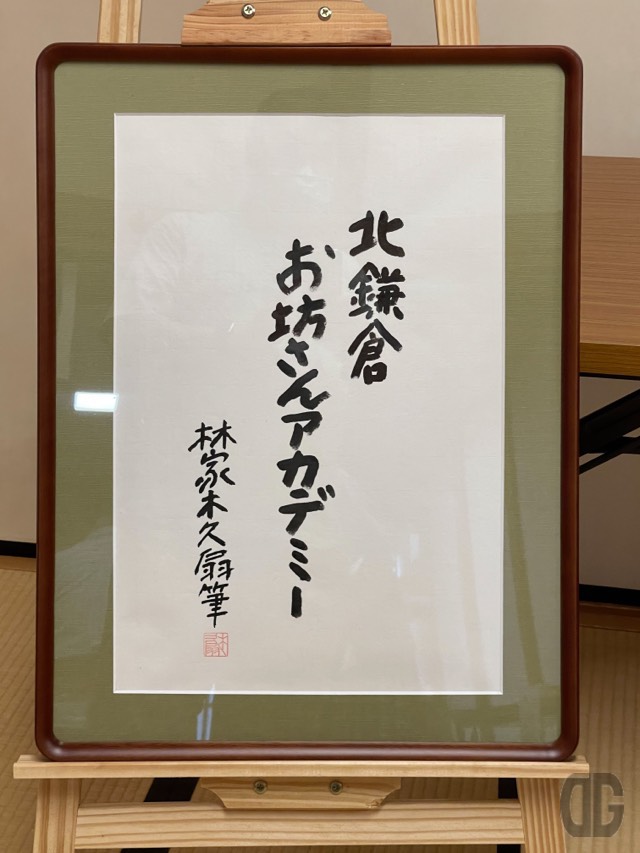 北鎌倉
お坊さんアカデミー
林家木久扇筆
DG